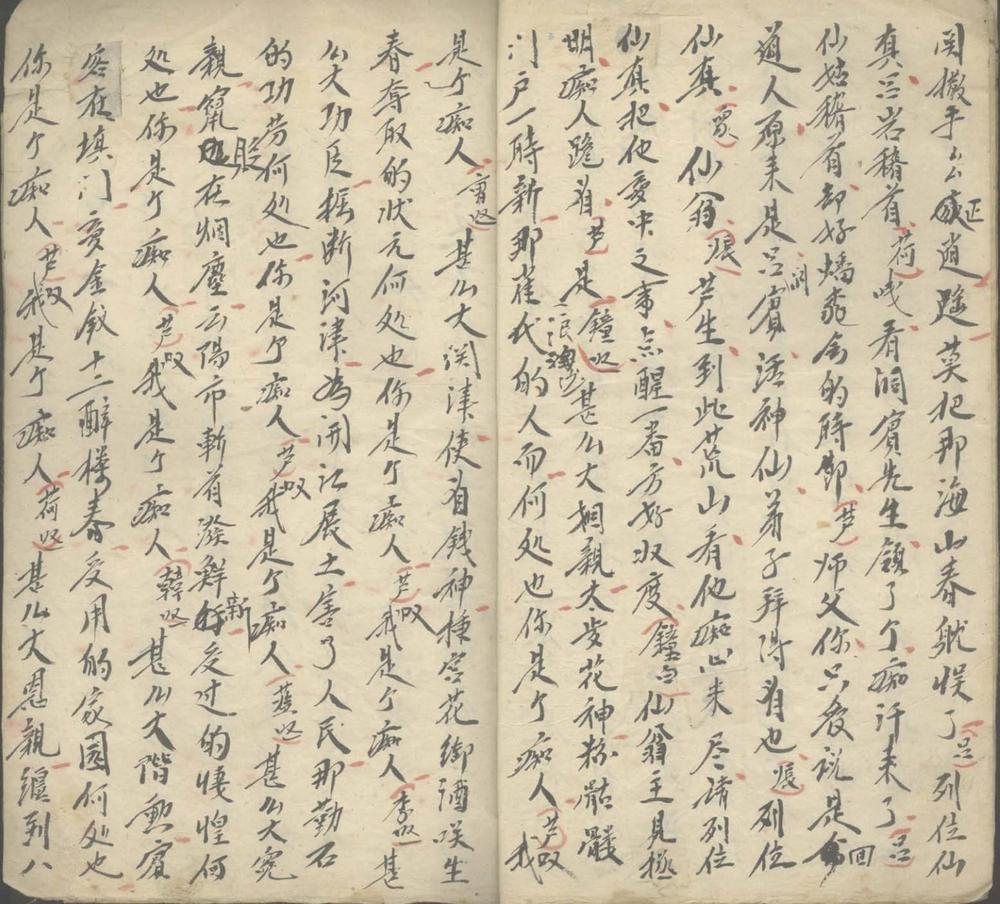 関撒手么正逍遥莫把那海山春躭悮了吕列位仙
真吕岩稽首荷哦看洞賓先生領了个痴汗来了吕
仙姑稽首却好蟠桃會的時節芦师父你只發说是回
道人原来是吕洞賓活神仙弟子拜淂着也張列位
仙真衆仙翁張芦生到此荒山看他痴心未尽请列位
仙真把他夢中之事点醒一番方好収度鐘白仙翁主見極
明痴人跪着芦是鐘唱浪淘沙甚么大姻親太歩花神粉骷髏
门户一時新那崔氏的人而何処也你是个痴人芦叹我
是个痴人曹唱甚么大関津使着钱神插宫花御酒咲生
春夺取的状元何処也你是个痴人芦叹我是个痴人李唱甚
么大功臣揺断河津為開讧展土害了人民那勤石
的功劳何処也你是个痴人芦叹我是个痴人藍唱甚么大冤
親竄股在烟塵云陽市斬首潑鮮新受过的悽惶何
処也你是个痴人芦叹我是个痴人韓唱甚么大階勲賓
客在填门受金釵十二醉楼春受用的家园何処也
你是个痴人芦叹我是个痴人荷唱甚么大恩親纏到八